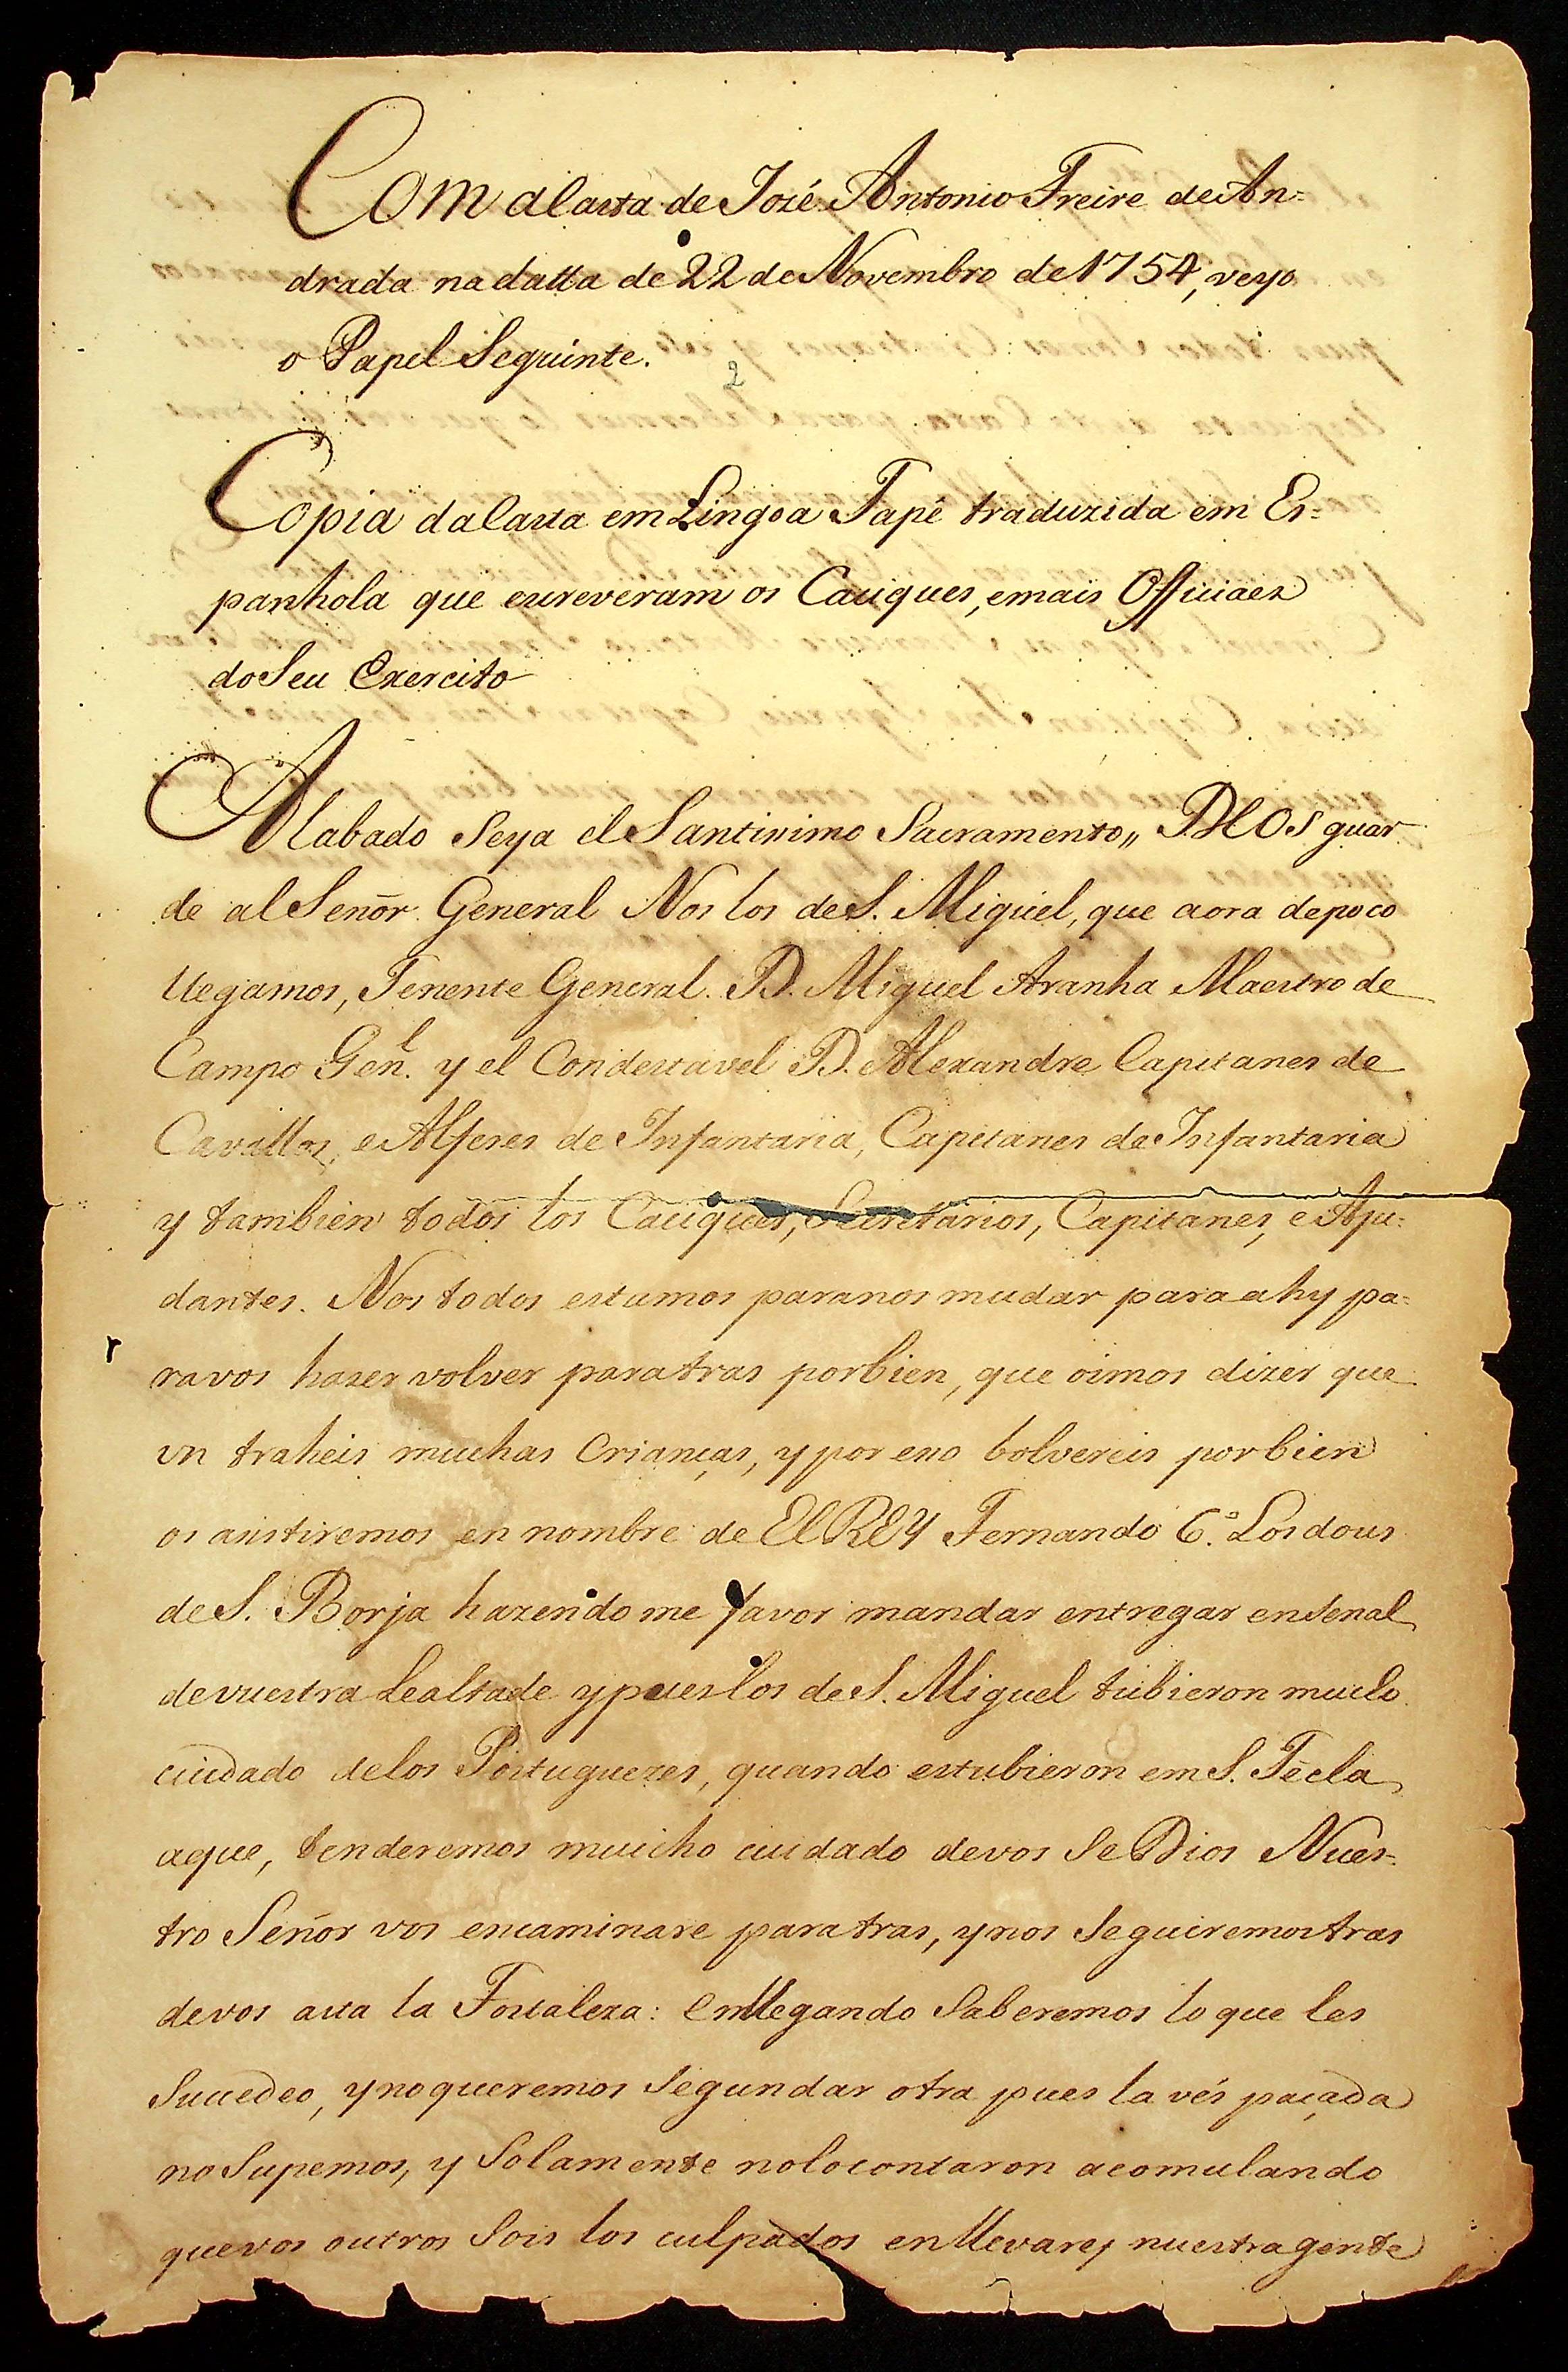 Com a Carta de Jozé Antonio Freire de An=
drada na datta de 22 de Novembro de 1754, veyo
o Papel Seguinte.
2
Copia da Carta em Lingoa Tapê traduzida em Es=
panhola que escreveram os Caciques, e mais Officiaes
do Seu Exercito
Alabado Seya el Santissimo Sacramento,, DEOS guar
de al Señor General Nos los de S. Miguel, que aora de poco
llegamos, Tenente General. D. Miguel Aranha Maestro de
Campo Gen.l y el Condestavel D. Alexandre Capitanes de
Cavallos, e Alferes de Infantaria, Capitanes de Infantaria
y tambien todos los Caciques, Secretarios, Capitanes, e Aju=
dantes. Nos todos estamos para nos mudar para ahy pa=
ra vos hazer volver para tras por bien, que oimos dizer que
vs traheis muchas Crianças, y por esso bolvereis por bien
os asistiremos en nombre de El REY Fernando 6.º Los dous
de S. Borja hazendo me favor mandar entregar en Senal
de vuestra Lealtade y pues los de S. Miguel tubieron mucho
cuidado de los Portuguezes, quando estubieron em S. Técla
aque, tenderemos muicho cuidado de vos Se Dios Nues=
tro Señor vos encaminare para tras, y nos Seguiremos tras
de vos asta la Fortaleza: En llegando Saberemos lo que les
Sucedeo, y no queremos Segundar otra pues la vés paçada
no Supemos, y Solamente nolo contaron acomulando
que vos outros Sois los culpados en llevarej nuestra gente